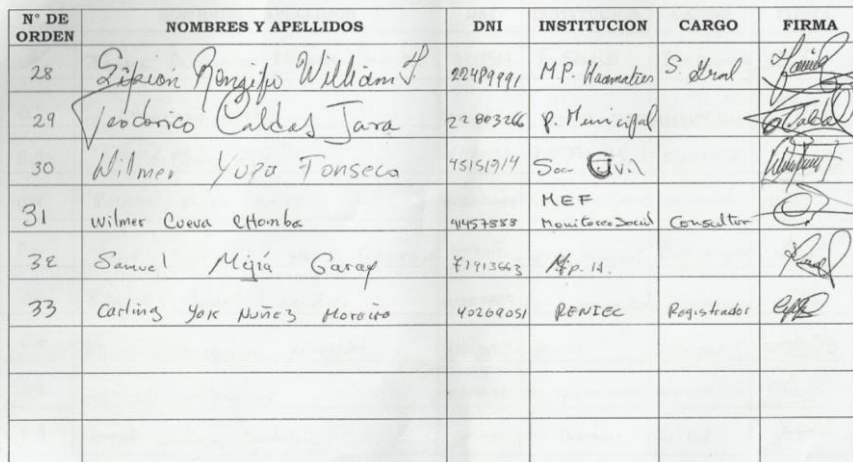 N° DE ORDEN NOMBRES Y APELLIDOS DNI INSTITUCION CARGO FIRMA
28 William 22489991 M.P. S. Gral
29 Teodorico Caldas Jara 22803266 P. Municipal
30 Wilmer Yupa Fonseca 45151914 Soc Civil
31 Wilmer Cueva CHomba 41457888 MEF Monitoreo Social Consultor
32 Samuel Mejía Garay 71913663 M.p. H.
33 Carling York Nuñez 40269051 RENIEC Registrador